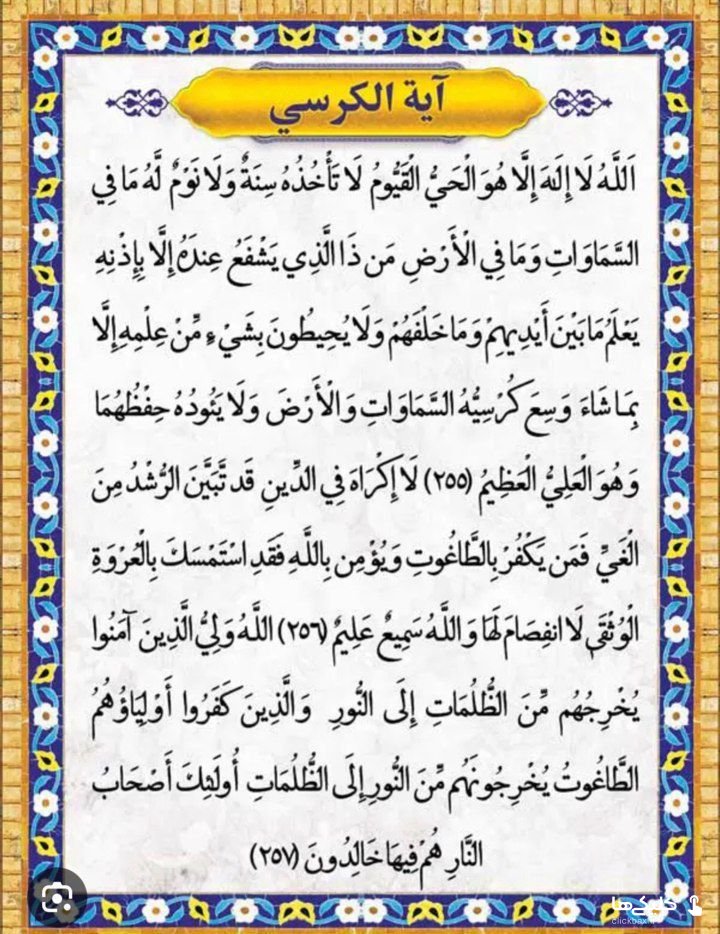 آية الكرسي
اَللَّهُ لَا إِلَهَ إِلَّا هُوَ الْحَيُّ الْقَيُّومُ لَا تَأْخُذُهُ سِنَةٌ وَلَا نَوْمٌ لَّهُ مَا فِي
السَّمَاوَاتِ وَمَا فِي الْأَرْضِ مَن ذَا الَّذِي يَشْفَعُ عِندَهُ إِلَّا بِإِذْنِهِ
يَعْلَمُ مَا بَيْنَ أَيْدِيهِمْ وَمَا خَلْفَهُمْ وَلَا يُحِيطُونَ بِشَيْءٍ مِّنْ عِلْمِهِ إِلَّا
بِمَا شَاءَ وَسِعَ كُرْسِيُّهُ السَّمَاوَاتِ وَالْأَرْضَ وَلَا يَئُودُهُ حِفْظُهُمَا
وَهُوَ الْعَلِيُّ الْعَظِيمُ (٢٥٥) لَا إِكْرَاهَ فِي الدِّينِ قَد تَّبَيَّنَ الرُّشْدُ مِنَ
الْغَيِّ فَمَن يَكْفُرْ بِالطَّاغُوتِ وَيُؤْمِن بِاللَّهِ فَقَدِ اسْتَمْسَكَ بِالْعُرْوَةِ
الْوُثْقَى لَا انفِصَامَ لَهَا وَاللَّهُ سَمِيعٌ عَلِيمٌ (٢٥٦) اللَّهُ وَلِيُّ الَّذِينَ آمَنُوا
يُخْرِجُهُم مِّنَ الظُّلُمَاتِ إِلَى النُّورِ وَالَّذِينَ كَفَرُوا أَوْلِيَاؤُهُمُ
الطَّاغُوتُ يُخْرِجُونَهُم مِّنَ النُّورِ إِلَى الظُّلُمَاتِ أُولَئِكَ أَصْحَابُ
النَّارِ هُمْ فِيهَا خَالِدُونَ (٢٥٧)